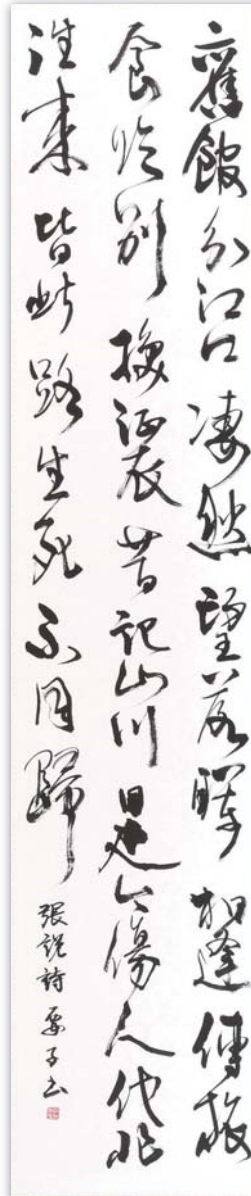 舊館分江口凄然望落暉相逢傳旅
食臨別換征衣昔記山川是今傷人代非
往來皆此路生死不同歸
張説詩 子書